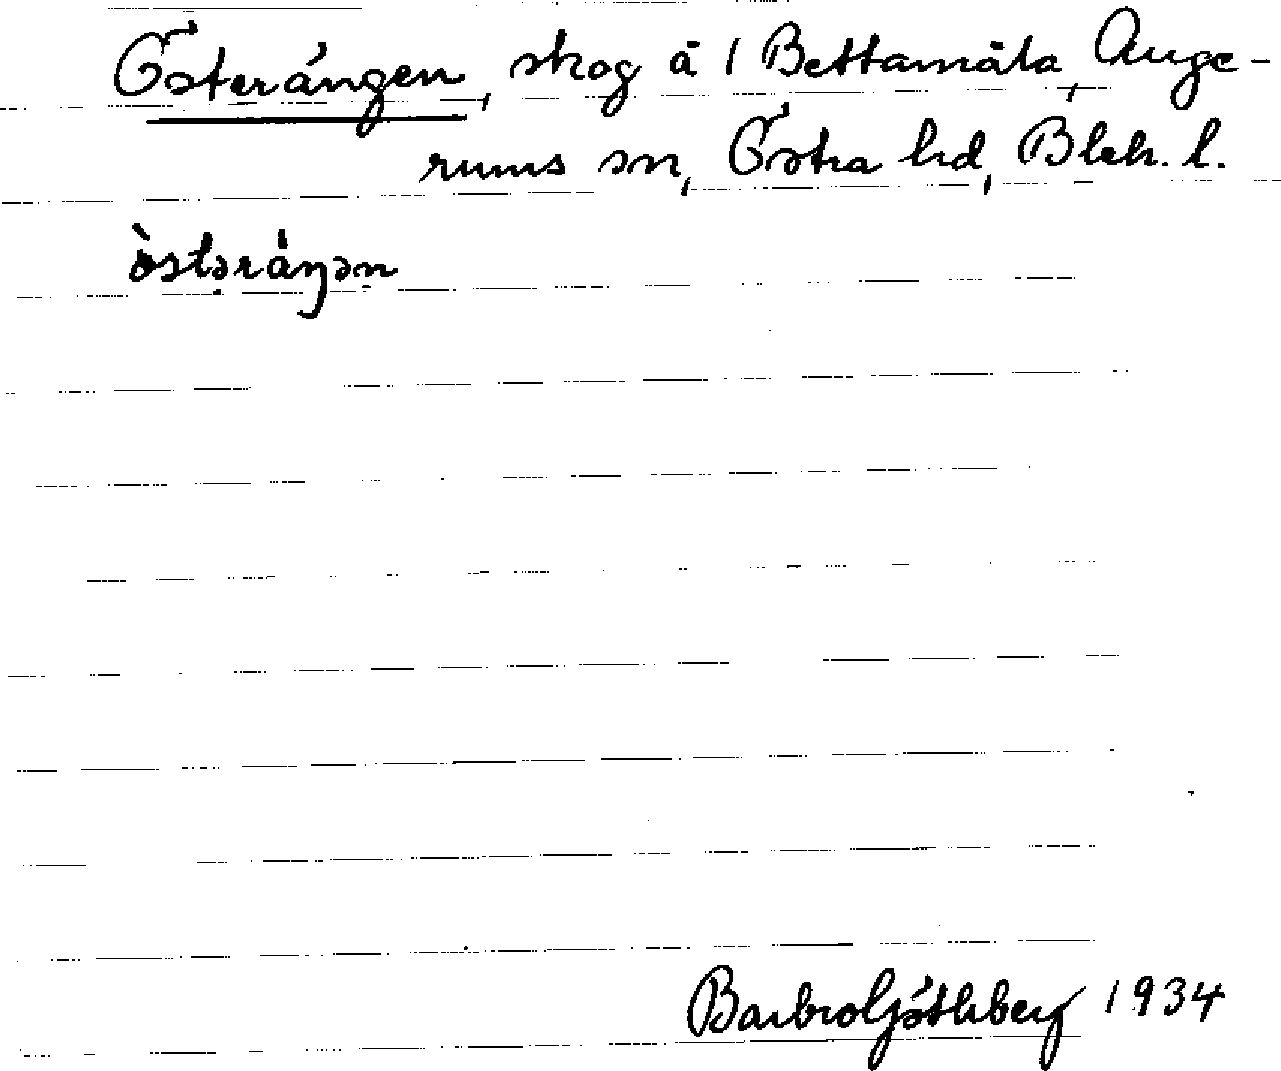 Österängen, skog å 1 Bettamåla, Auge-
rums sn, Östra hd, Blek. l.
òstəráŋən
Barbro Göthberg 1934